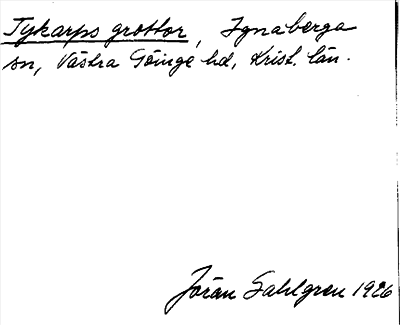 Tykarps grottor, Ignaberga
sn, Västra Göinge hd, Krist. län.
Jöran Sahlgren 1926